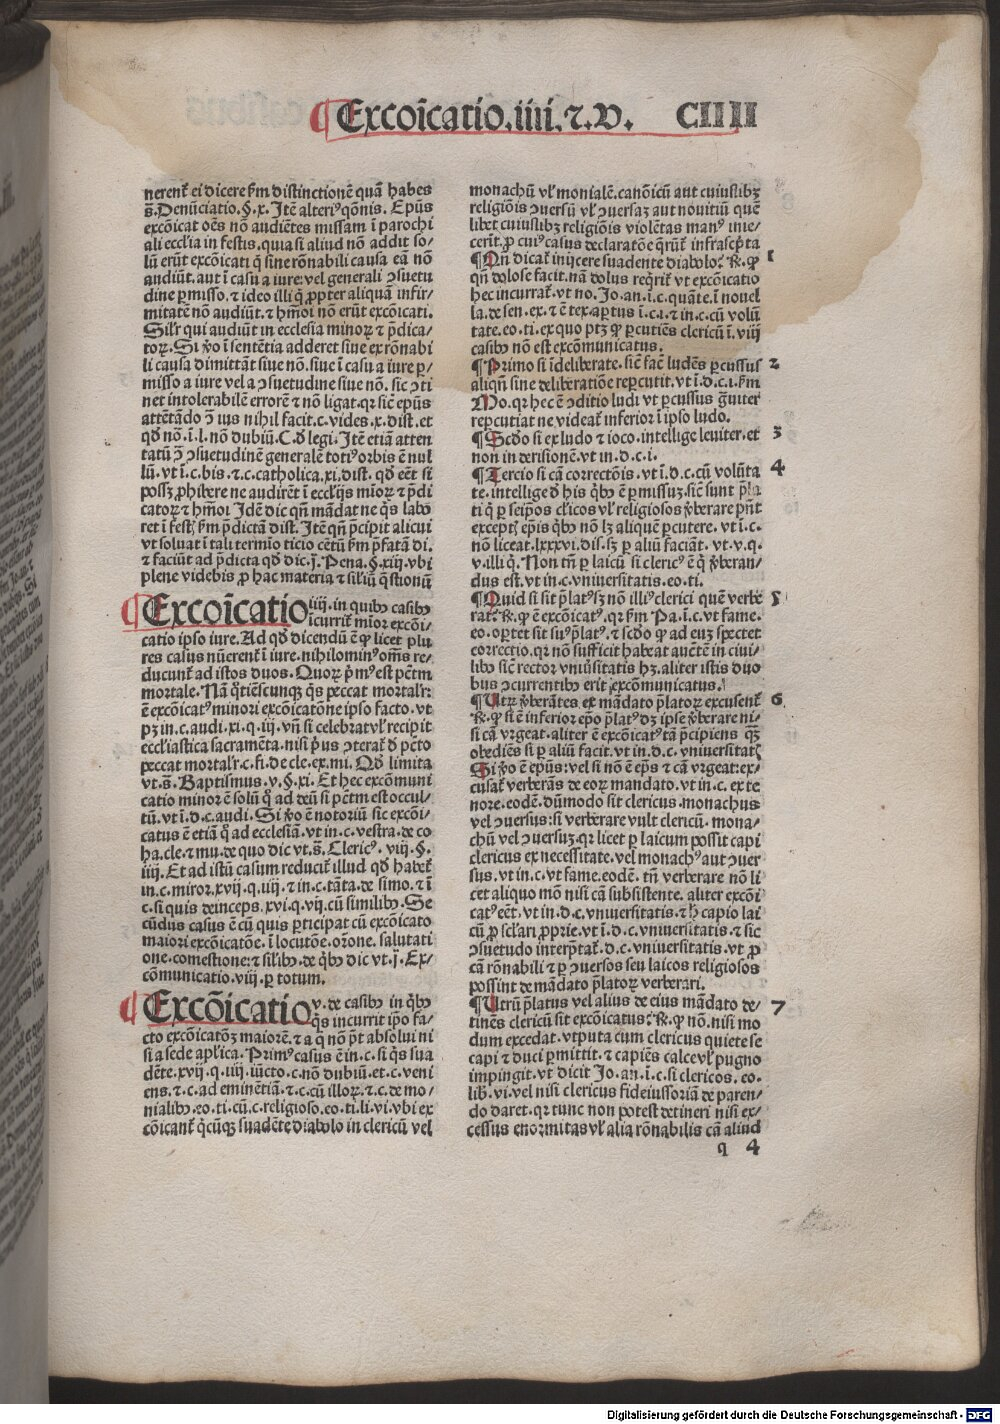 ¶Excoīcatio.iiii.⁊.V. CIIII
nerent̄ ei dicere s̄m distinctionē quā habes
s̄.Denūciatio.§.x. Itē alteriꝰ q̄onis. Ep̄us
excōicat oēs nō audiētes missam ī parochi
ali eccl̄ia in festis.quia si aliud nō addit so/
lū erūt excōicati q̇ sine rōnabili causa eā nō
audiūt.aut ī casu a iure: vel generali ꝯsuetu
dine ꝑmisso.⁊ ideo illi q̇ ꝓpter aliquā infir/
mitatē nō audiūt.⁊ hm̄oi nō erūt excōicati.
Sil̄r qui audiūt in ecclesia minoꝝ ⁊ p̄dica/
toꝝ. Si v̄o ī sentētia adderet siue ex rōnabi
li causa dimittāt siue nō.siue ī casu a iure ꝑ/
misso a iure vel a ꝯsuetudine siue nō. sic ꝯti
net intolerabilē errorē ⁊ nō ligat.qr siē ep̄us
attētādo ꝯ ius nihil facit.c.vides.x.dist.et
qd̄ nō.ī.l.nō dubiū.C.d̄ legi. Itē etiā atten
tatū ꝯ ꝯsuetudinē generalē totiꝰ orbis ē nul
lū.vt ī.c.bis.⁊.c.catholica.xi.dist. qd̄ eēt si
possꝫ ꝓhibere ne audirēt ī eccl̄ijs mīoꝝ ⁊ p̄di
catoꝝ ⁊ hm̄oi Idē dic qn̄ mādat ne q̇s labo
ret ī fest̄ s̄m p̄dictā dist. Itē qn̄ p̄cipit alicui
vt soluat ī tali termīo ticio cētū s̄m p̄fatā di.
⁊ faciūt ad p̄dicta qd̄ dic.j̄.Pena.§.xiij.vbi
plene videbis ꝓ hac materia ⁊ sil̄iū q̄stionū
¶Excoīcatio iiij.in quibꝰ casibꝰ
īcurrit̄ mīor excōi/
catio ipso iure. Ad qd̄ dicendū ē ꝙ licet plu
res casus nūerent̄ ī iure.nihilominꝰ om̄s re/
ducunt̄ ad istos duos. Quoꝝ p̄mꝰ est pctm̄
mortale. Nā q̇tiēscunqꝫ q̇s peccat mortalr̄:
ē excōicatꝰ minori excōicatōne ipso facto.vt
pꝫ in.c.audi.xi.q.iij.vn̄ si celebrat vl̄ recipit
eccl̄iastica sacramēta.nisi p̄us ꝯterat̄ d̄ pctō
peccat mortalr̄.c.fi.de cle.ex.mi. Qd̄ limita
vt.s̄.Baptismus.v.§.xi. Et hec excōmuni
catio minor ē solū q̊ ad deū si pctm̄ est occul/
tū.vt ī.d.c.audi. Si v̄o ē notoriū sic excōi/
catus ē etiā q̊ ad ecclesiā.vt in.c.vestra.de co
ha.cle.⁊ mu.de quo dic vt.s̄.Clericꝰ.viij.§.
iiij. Et ad istū casum reducit̄ illud qd̄ habet̄
in.c.miror.xvij.q.iiij.⁊ in.c.tāta.de simo.⁊ ī
c.si quis deinceps.xvi.q.vij.cū similibꝰ. Se
cūdus casus ē cū quis ꝑticipat cū excōicato
maiori excōicatōe.ī locutōe.or̄one.salutati
one.comestione:⁊ sil̄ibꝰ.de q̇bꝰ dic vt.j̄.Ex/
cōmunicatio.viij.ꝑ totum.
¶Excōicatio v.de casibꝰ in q̇bꝰ
q̇s incurrit ip̄o fa/
cto excōicatōꝫ maiorē.⁊ a q̇ nō p̄t absolui ni
si a sede apl̄ica. Primꝰ casus ē in.c.si q̇s sua
dēte.xvij.q.iiij.iūcto.c.nō dubiū.et.c.veni
ens.⁊.c.ad eminētiā.⁊.c.cū illoꝝ.⁊.c.de mo/
nialibꝰ.eo.ti.cū.c.religioso.eo.ti.li.vi.vbi ex
cōicant̄ q̇cūqꝫ suadēte diabolo in clericū vel
monachū vl̄ monialē.canōicū aut cuiuslibꝫ
religiōis ꝯuersū vl̄ ꝯuersaꝫ aut nouitiū quē
libet cuiuslibꝫ religiōis violētas manꝰ inie/
cerīt.ꝓ cuiꝰ casus declaratōe q̄rūt̄ infrasc̄pta
¶Qn̄ dicat̄ inijcere suadente diabolo? ℞.ꝙ 1
qn̄ dolose facit.nā dolus req̇rit̄ vt excōicatio
hec incurrat̄.vt no.Jo.an.ī.c.quāte.ī nouel
la.de sen.ex.⁊ ē tex.aptus ī.c.i.⁊ in.c.cū volū
tate.eo.ti.ex quo ptꝫ ꝙ ꝑcutiēs clericū ī.viij
casibꝰ nō est excōmunicatus.
¶Primo si īdeliberate.sic̄ fac̄ ludēs ꝑcussus 2
aliqn̄ sine deliberatiōe reꝑcutit.vt ī.d.c.i.s̄m
Mo.qr hec ē ꝯditio ludi vt ꝑcussus ḡuiter
reꝑcutiat ne videat̄ inferior ī ipso ludo.
¶Scd̄o si ex ludo ⁊ ioco.intellige leuiter.et 3
non in derisionē.vt in.d.c.i.
¶Tercio si cā correctōis.vt ī.d.c.cū volūta 4
te.intellige d̄ his q̇bꝰ ē ꝑmissuꝫ.sic̄ sunt p̄la
ti q̇ ꝑ seip̄os cl̄icos vl̄ religiosos v̄berare p̄nt
except̄ ep̄is q̇bꝰ nō lꝫ aliquē ꝑcutere.vt ī.c.
nō liceat.lxxxvi.dis.sꝫ ꝑ aliū faciāt.vt.v.q.
v.illi q̇. Non tn̄ ꝑ laicū si clericꝰ ē q̇ v̄beran/
dus est.vt in.c.vniuersitatis.eo.ti.
¶Quid si sit p̄latꝰ sꝫ nō illiꝰ clerici quē verbe 5
rat? ℞.ꝙ ē excōicatꝰ.qr s̄m Pa.ī.c.vt fame.
eo.oꝑtet sit suꝰ p̄latꝰ.⁊ scd̄o ꝙ ad euꝫ spectet
correctio.qr nō sufficit habeat auc̄tē in ciui/
libꝰ sic̄ rector vniuersitatis hꝫ.aliter istis duo
bus ꝯcurrentibꝰ erit excōmunicatus.
¶Utꝝ v̄berātes ex mādato p̄latoꝝ excusent̄ 6
℞.ꝙ si ē inferior ep̄o p̄latꝰ dꝫ ipse v̄berare ni/
si cā vrgeat.aliter ē excōicatꝰ tā p̄cipiens qꝫ
obediēs si ꝑ aliū facit.vt in.d.c.vniuersitat̄
Si v̄o ē ep̄us:vel si nō ē ep̄s ⁊ cā vrgeat:ex/
cusat̄ verberās de eoꝝ mandato.vt in.c.ex te
nore.eodē.dūmodo sit clericus.monachus
vel ꝯuersus:si verberare vult clericū.mona/
chū vel ꝯuersuꝫ.qr licet ꝑ laicum possit capi
clericus ex necessitate.vel monachꝰ aut ꝯuer
sus.vt in.c.vt fame.eodē. tn̄ verberare nō li
cet aliquo mō nisi cā subsistente.aliter excōi
catꝰ eēt.vt in.d.c.vniuersitatis.⁊ h̄ capio lai
cū ꝓ sclari ꝓprie.vt ī.d.c.vniuersitatis.⁊ sic
ꝯsuetudo interp̄tat̄.d.c.vniuersitatis.vt ꝓ
cā rōnabili ⁊ ꝑ ꝯuersos seu laicos religiosos
possint de mādato p̄latoꝝ verberari.
¶Utrū p̄latus vel alius de eius mādato de/ 7
tinēs clericū sit excōicatus? ℞.ꝙ nō.nisi mo
dum excedat.vtputa cum clericus quiete se
capi ⁊ duci ꝑmittit.⁊ capiēs calce vl̄ pugno
impingit.vt dicit Jo.an.ī.c.si clericos.eo.
lib.vi.vel nisi clericus fideiussoriā de paren/
do daret.qr tunc non potest detineri nisi ex/
cessus enormitas vl̄ alia rōnabilis cā aliud
q 4
Digitalisierung gefördert durch die Deutsche Forschungsgemeinschaft - DFG